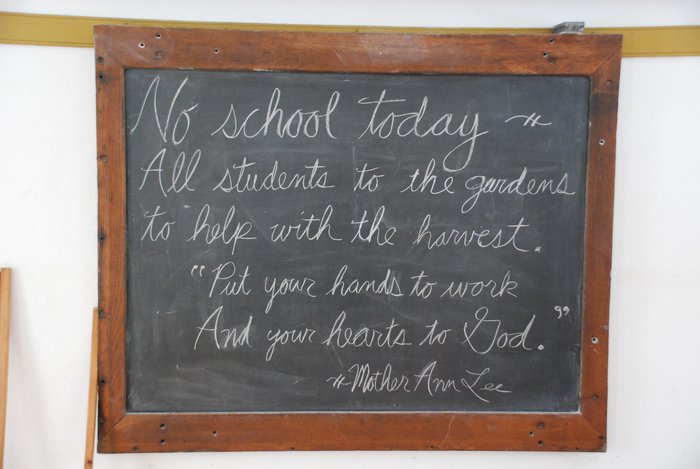 No school today ~
All students to the gardens
to help with the harvest.
"Put your hands to work
And your hearts to God."
~Mother Ann Lee